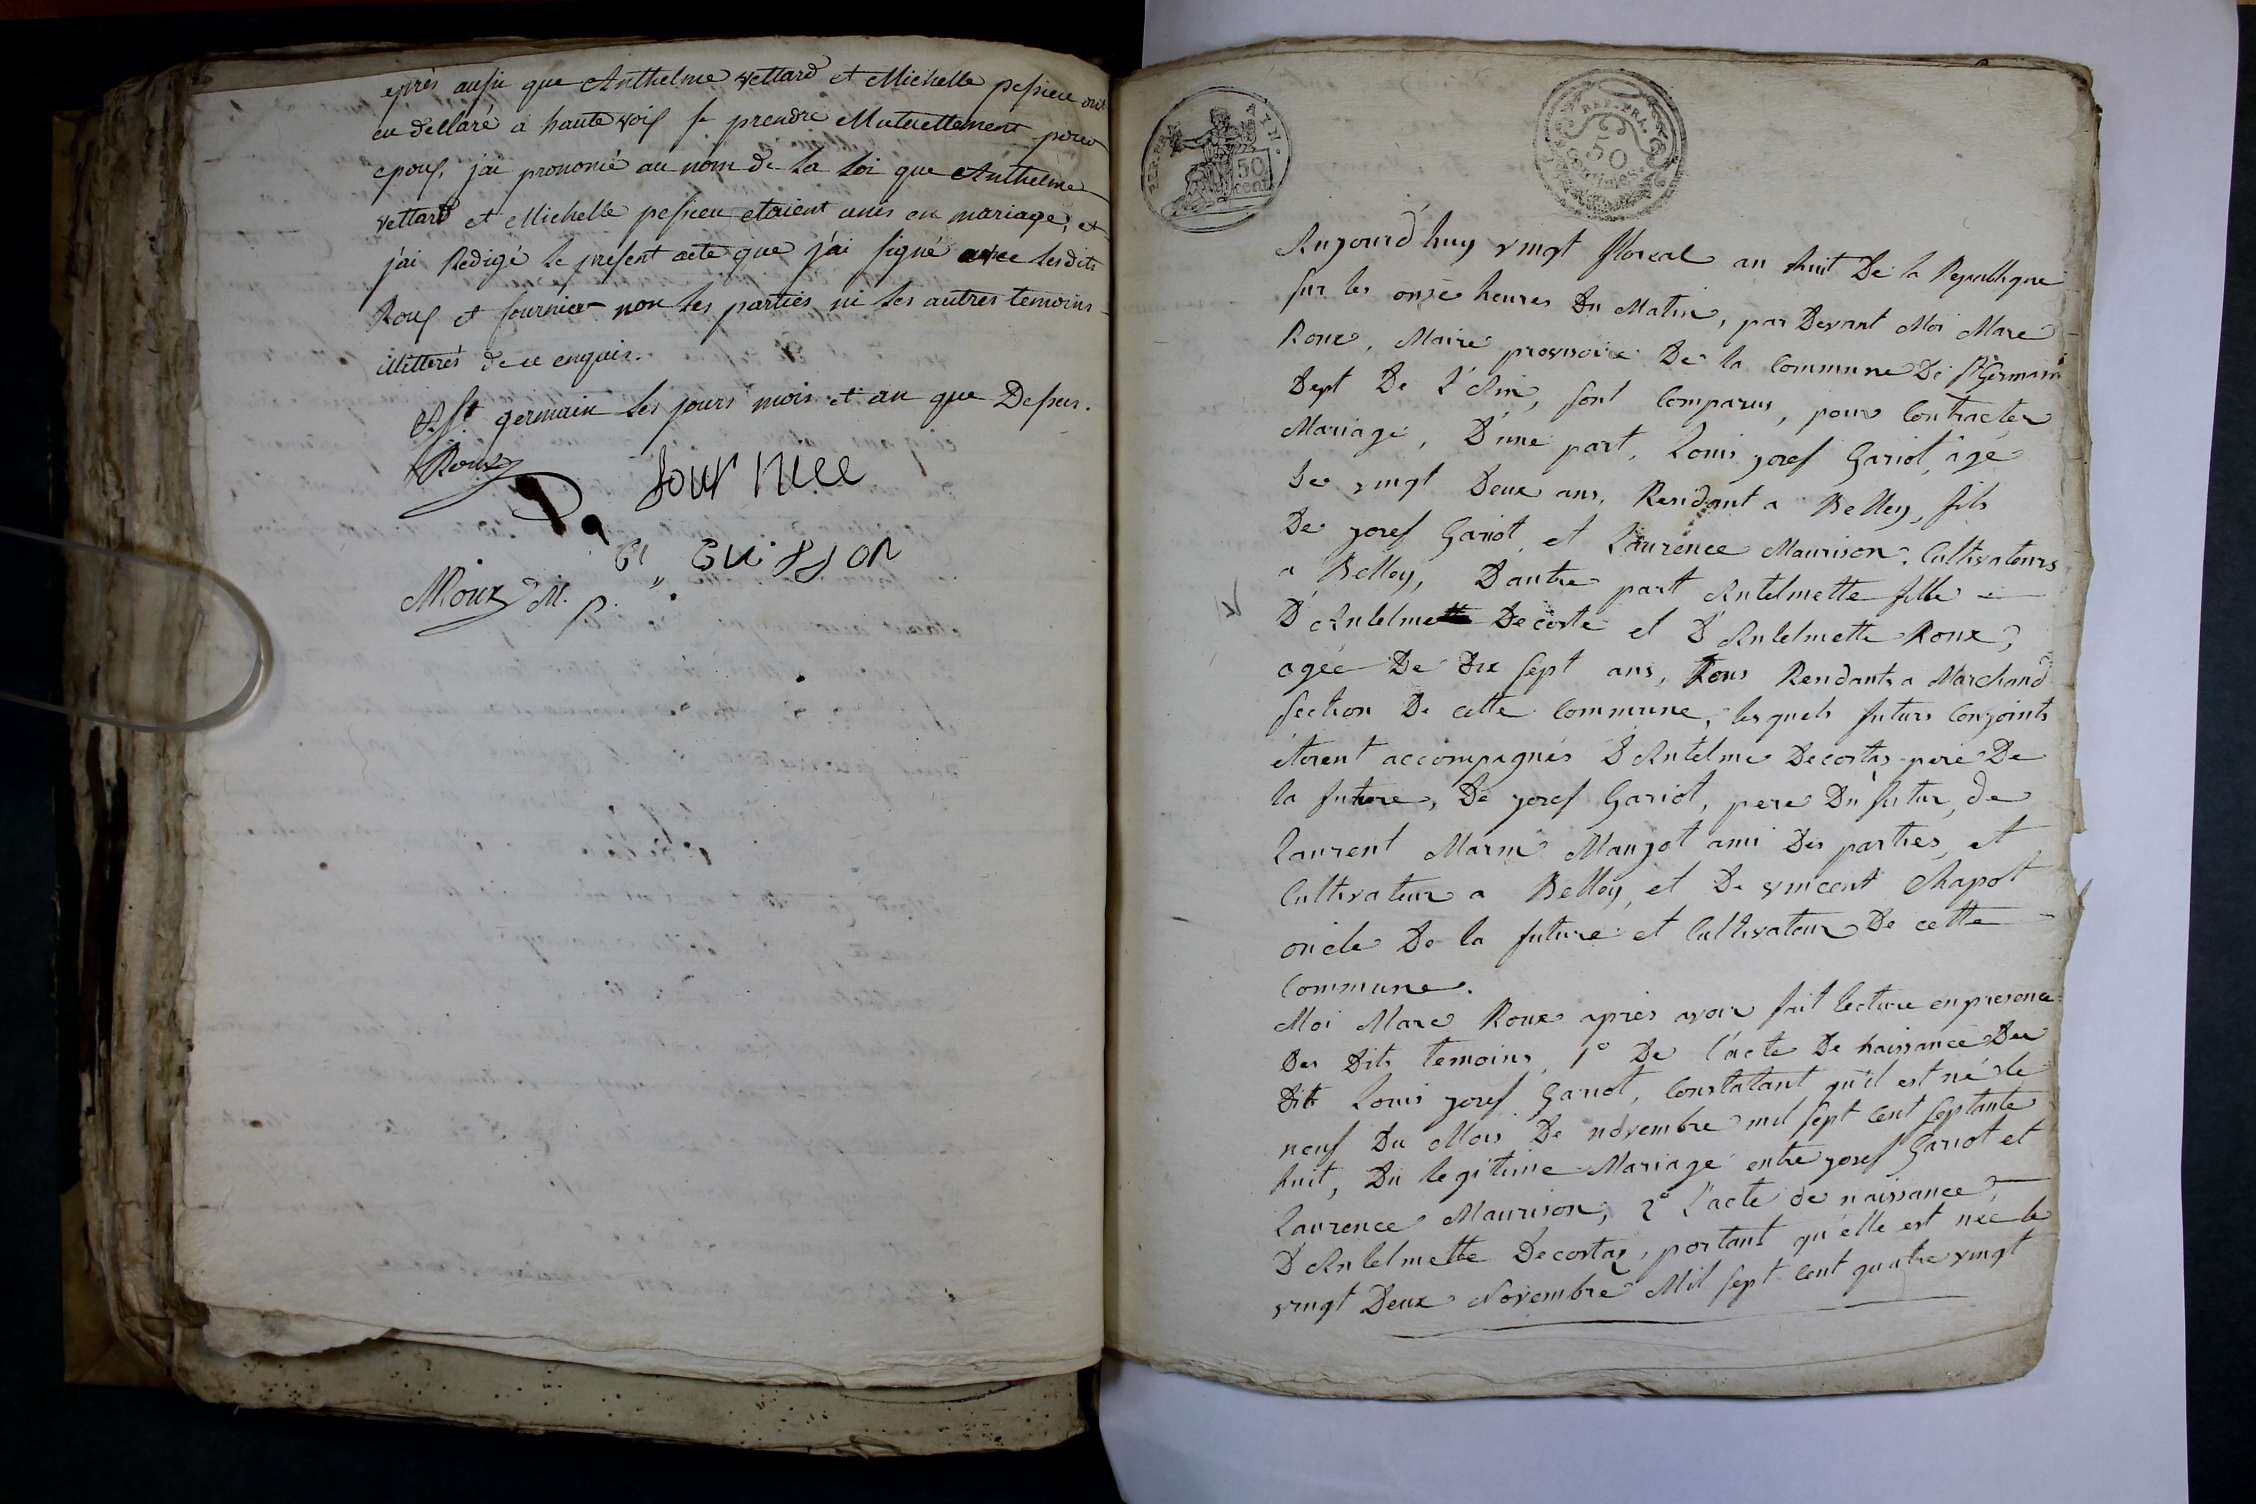 après aussi que Anthelme vettard et Michelle pessieu ont
eu declaré a haute voix se prendre Mutuellement pour
epoux, j'ai prononcé au nom de la loi que Anthelme
vettard et Michelle pessieu etaient unis en mariage, et
j'ai Redigé le present acte que j'ai signé avec lesdits
Roux et fournier non les parties ni les autres temoins
illitteres de ce enquis.
A St. germain les jours mois et an que Dessus.
Roux
P. four niee
Cl,, BUISSON
MRoux M. P.
REP. FRA.
50
cent.
REP. FRA.
50
centimes.
Aujourd'huy vingt floreal an huit De la Republique
sur les onze heures Du Matin, par Devant Moi Marc
Roux, Maire provisoire De la Commune De St Germain
Dept De L'Ain, sont Comparus, pour Contracter
Mariage, D'une part, Louis josef Gariot, âgé
De vingt Deux ans, Residant a Belley, fils
De josef Gariot, et Laurence Maurison, Cultivateurs
a Belley, D'autre part Antelmette fille
D'Antelme Decoste et D'Antelmette Roux,
agée De Dix sept ans, tous Residants a Marchand
section De cette Commune, lesquels futurs Conjoints
étoient accompagnés D'Antelme Decostas pere De
la future, De josef Gariot, pere Du futur, de
Laurent Marin Maujot ami Des parties, et
Cultivateur a Belley, et De vincent Chapot
oncle De la future et Cultivateur De cette
Commune.
Moi Marc Roux après avoir fait lecture en presence
Des Dits temoins, 1° De l'acte De naissance Du
Dit Louis josef Gariot, Constatant qu'il est né le
neuf Du Mois De novembre mil sept cent septante
huit, Du legitime Mariage entre josef Gariot et
Laurence Maurison, 2° L'acte de naissance,
D'Antelmette Decostas, portant qu'elle est neé le
vingt Deux Novembre Mil sept cent quatre vingt